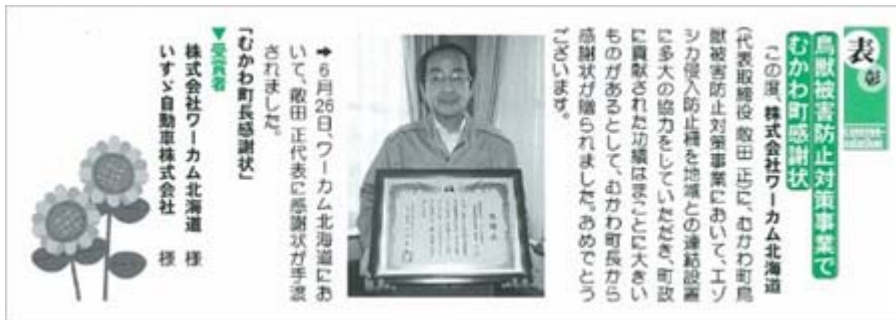 表彰
鳥獣被害防止対策事業で
むかわ町感謝状
この度、株式会社ワーカム北海道
(代表取締役 敞田 正)に、むかわ町鳥
獣被害防止対策事業において、エゾ
シカ侵入防止柵を地域との連結設置
に多大の協力をしていただき、町政
に貢献された功績はまことに大きい
ものがあるとして、むかわ町長から
感謝状が贈られました。おめでとう
ございます。
➡6月26日、ワーカム北海道にお
いて、敞田 正代表に感謝状が手渡
されました。
「むかわ町長感謝状」
▼受賞者
株式会社ワーカム北海道 様
いすゞ自動車株式会社 様